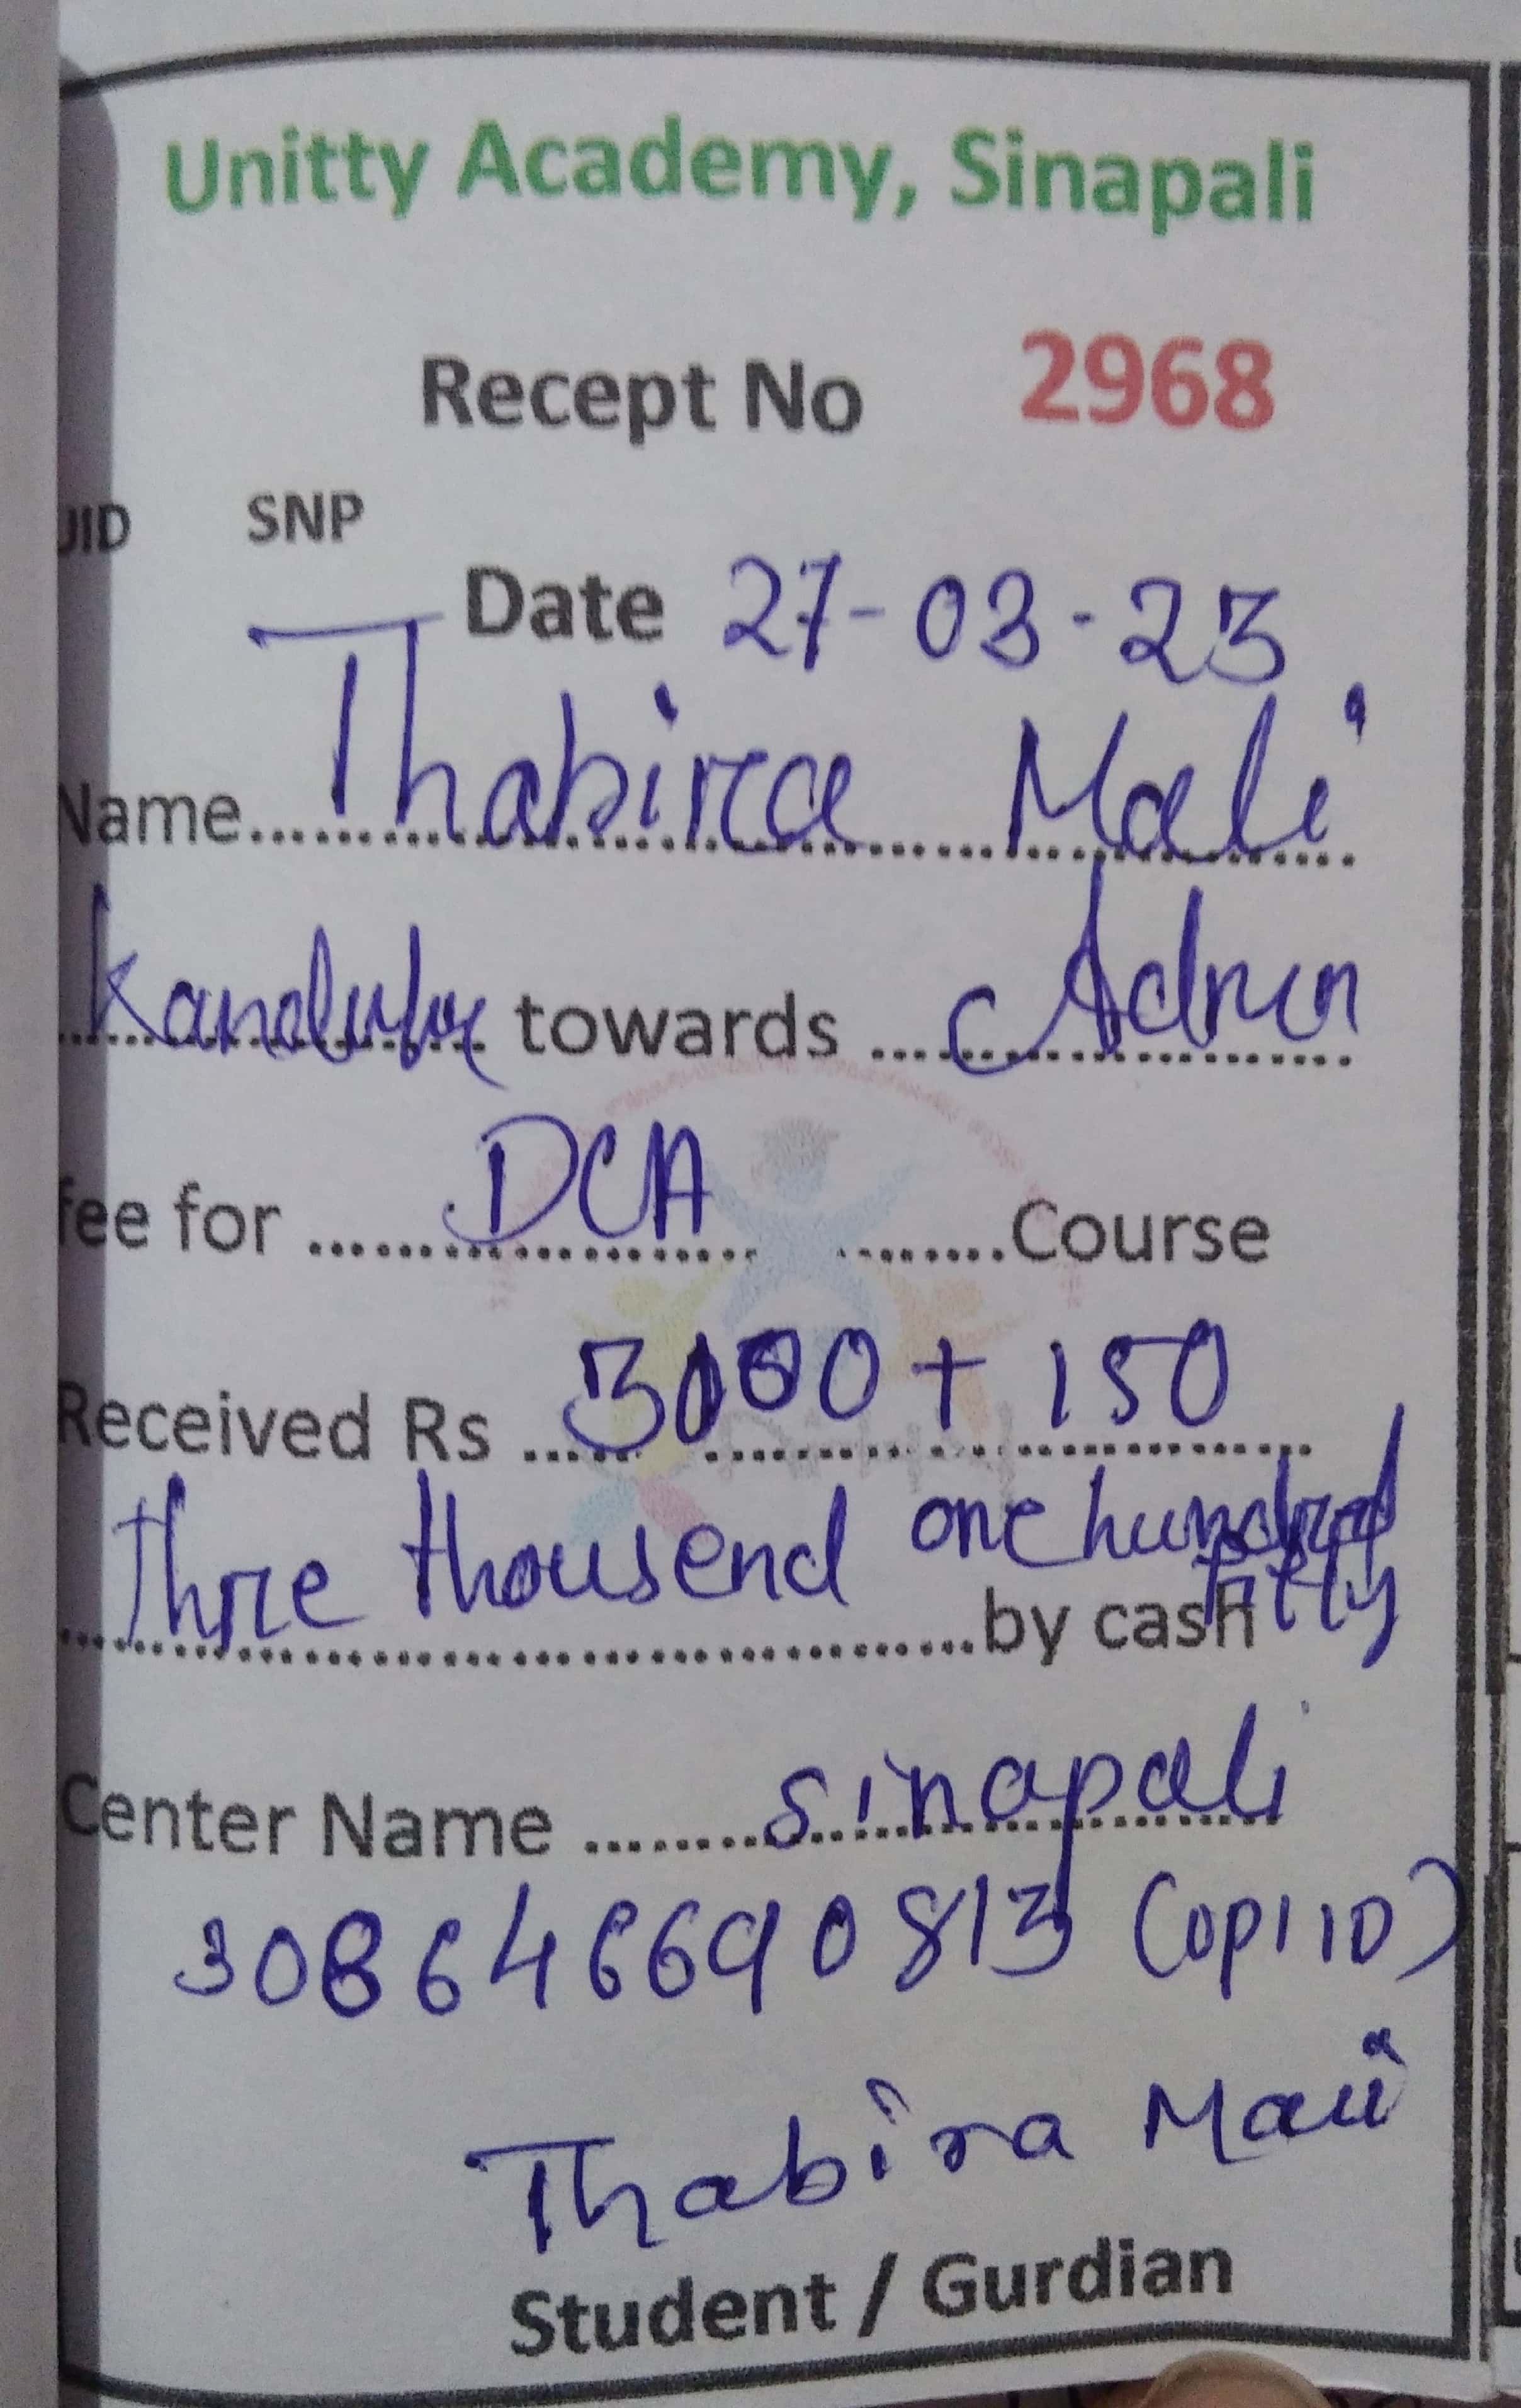 Unitty Academy, Sinapali
Recept No 2968
UID SNP
Date 27-03-23
Name.......... Thabira Mali
.......... towards .......... Admn
fee for .......... DCA ..........Course
Received Rs .......... 3000 + 150
Thrre thousend one hundred
fitty
..........by cash
Center Name .......... Sinapali
308646690813 (OPIID)
Thabira Mali
Student / Gurdian